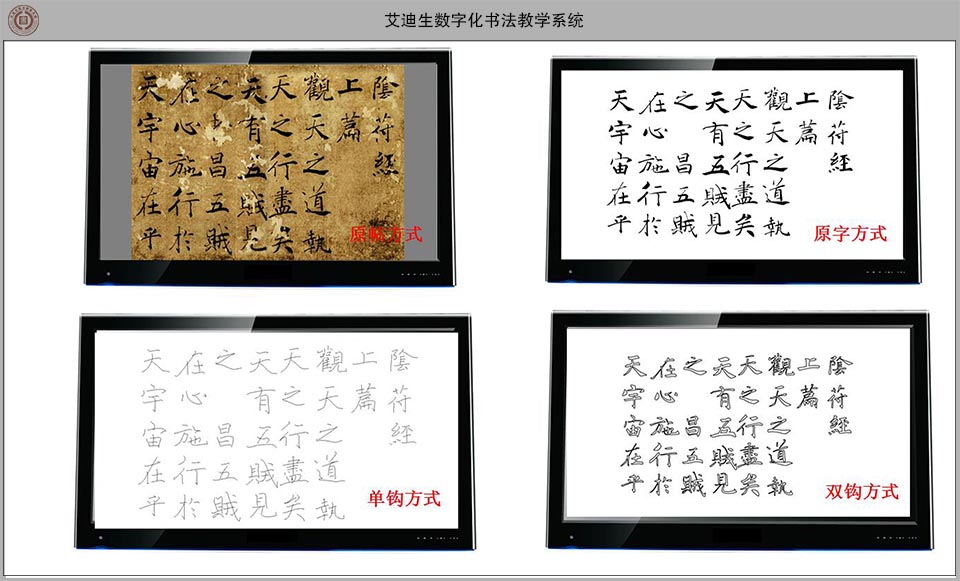 艾迪生数字化书法教学系统
陰符經
上篇
觀天之道執
天之行盡矣
天有五賊見
之 昌五賊
在心施行於
天宇宙在乎
方式
陰符經
上篇
觀天之道執
天之行盡矣
天有五賊見
之 昌五賊
在心施行於
天宇宙在乎
原字方式
陰符經
上篇
觀天之道執
天之行盡矣
天有五賊見
之 昌五賊
在心施行於
天宇宙在乎
单钩方式
陰符經
上篇
觀天之道執
天之行盡矣
天有五賊見
之 昌五賊
在心施行於
天宇宙在乎
双钩方式